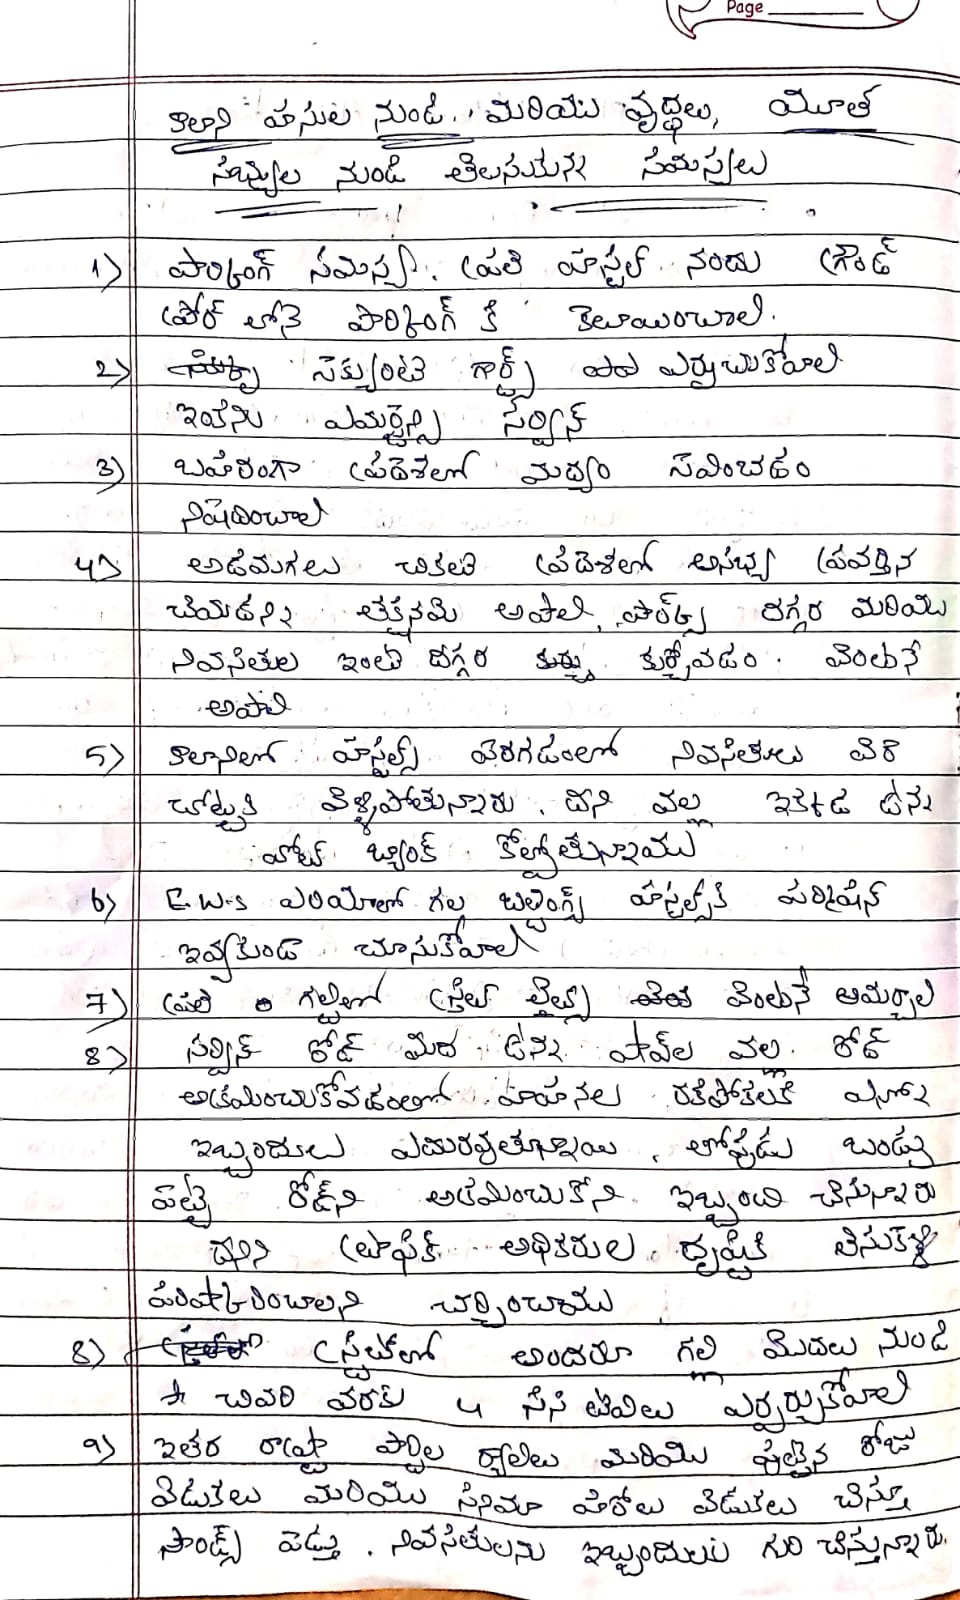 Page
కాలని వాసుల నుండి, మరియు వృద్ధలు, యూత
సభ్యుల నుండి తెలసుకున్న సమస్యలు
1) పార్కింగ్ సమస్య. ప్రతి హాస్టల్ నందు గ్రౌండ్
ఫ్లోర్ లోనె పార్కింగ్ కి కెటాయించాలి.
2) సెక్యురిటి గార్డ్స్ ఎర్పుచుకోవాలి
ఎమర్జెన్సి సర్విస్
3) బహిరంగా ప్రదెశలో మద్యం సెవించడం
నిషెదించాలి
4) అడమగలు చికటి ప్రదెశలో అసభ్య ప్రవర్తన
చెయడన్ని తక్షనమె అపాలి, పార్క్స్ దగ్గర మరియు
నివసితుల ఇంటి దగ్గర కుర్చోవడం. వెంటనే
అపాలి
5) కాలనిలో హస్టల్స్ పెరగడంలో నివసితులు వెరె
చోట్టుకి వెళ్ళిపోతున్నారు. దిని వల్ల ఇక్కడ ఉన్న
వోట్ బ్యాంక్ కోల్పోతున్నాము
6) E.W.S ఎరియాలో గల్ల బిల్డింగ్స్ హాస్టల్స్‌కి పర్మిషన్
ఇవ్వకుండా చూసుకోవాలి
7) ప్రతి గల్లిలో స్ట్రిట్ లైట్స్ వెంటనే అమర్చాలి
8) సర్విస్ రోడ్ మిద ఉన్న షాప్‌ల వల్ల రోడ్
అక్రమించుకోవడంతో వాహనల రకపోకలకి ఎన్నో
ఇబ్బందులు ఎదురవుతున్నాయి. బండ్లు
పెట్టి రోడ్‌ని అక్రమించుకోని ఇబ్బంది చెస్తున్నారు
దిని ట్రాఫిక్ అధికరుల దృష్టికి తిసుకెళ్లి
పరిష్కరించాలని చర్చించాము
8) స్ట్రిట్‌లో అందరూ గల్లి మొదలు నుండి
చివరి వరకు 4 సిసి టివిలు ఎర్పర్చుకోవాలి
9) ఇతర రాష్ట్ర పార్టిల ర్యాలిలు మరియు పుట్టిన రోజు
వెడుకలు మరియు సినిమా హిరోలు వెడుకలు చెస్తూ
సౌండ్స్ పెడ్తు. నివసితులను ఇబ్బందులు గురి చెస్తున్నారు.